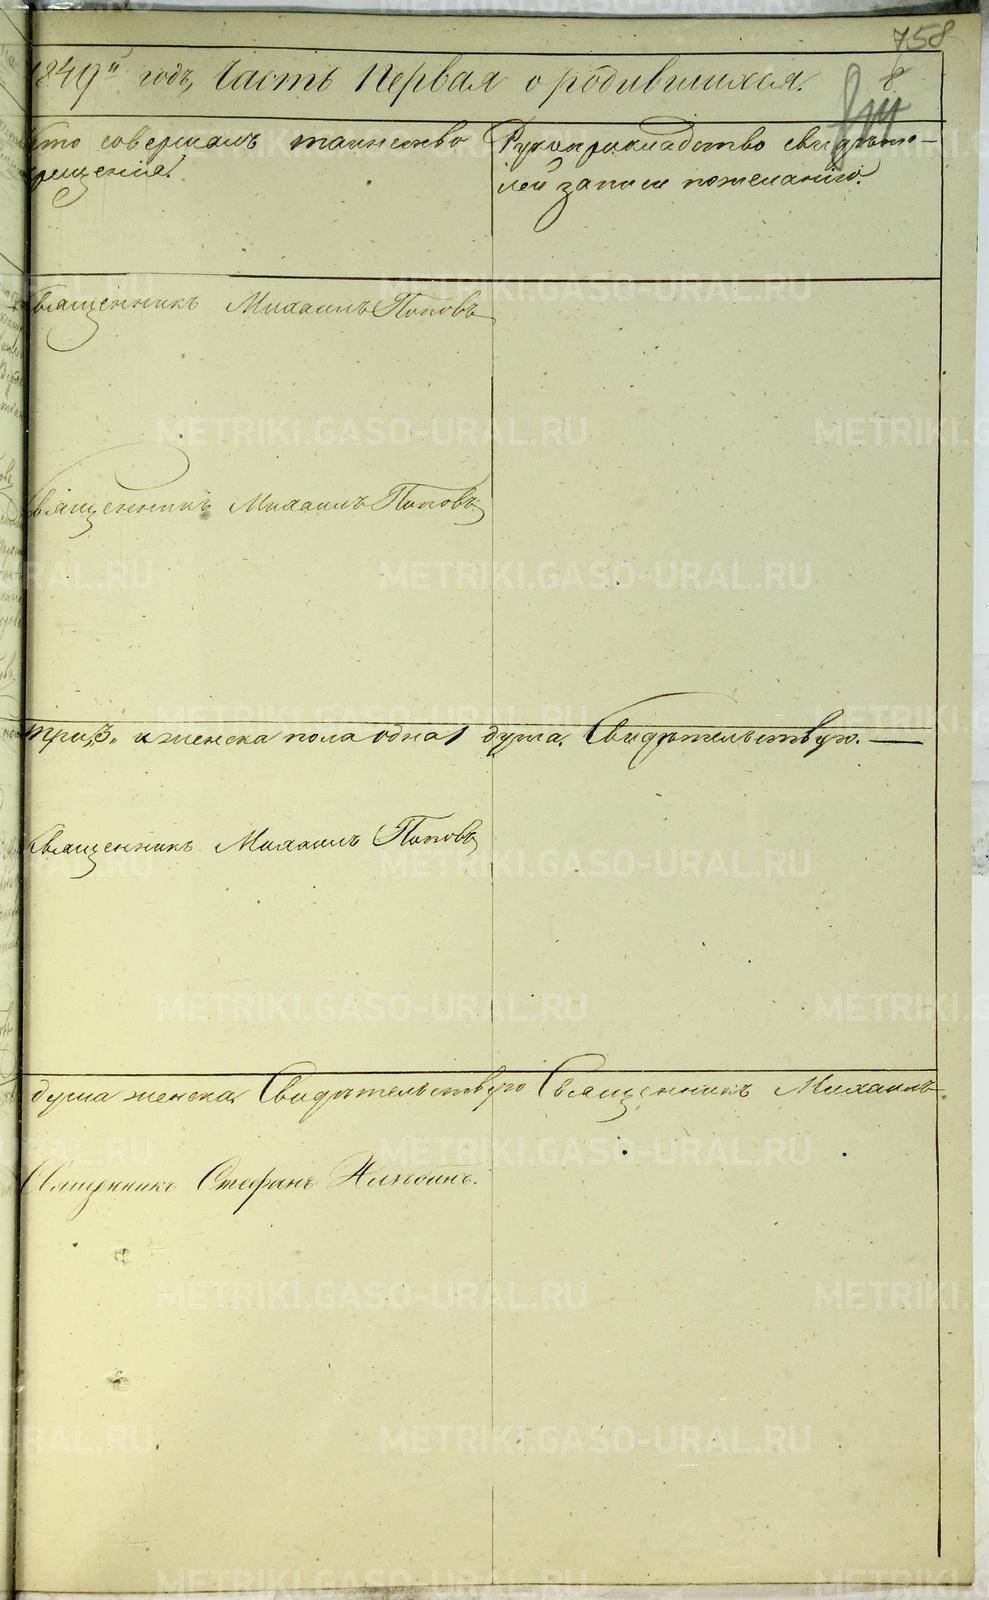 758
1849й годъ, Часть Первая о родившихся. 8.
Кто совершалъ таинство Рукоприкладство свидѣте-
крещения. лей записи пожеланію.
Священникъ Михаилъ Поповъ
Священникъ Михаилъ Поповъ
три, 3. и женска пола одна 1 душа. Свидѣтельствую. —
Священникъ Михаилъ Поповъ
душа женска. Свидѣтельствую Священникъ Михаилъ
Священникъ Стефанъ
METRIKI.GASO-URAL.RU